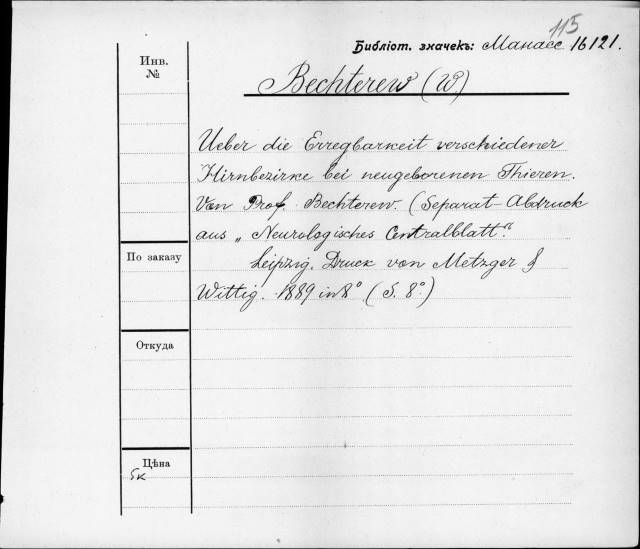 115
Библіот. значекъ: Манасс 16121.
Инв. №
Bechterew (W)
Ueber die Erregbarkeit verschiedener
Hirnbezirke bei neugeborenen Thieren.
Von Prof. Bechterew. (Separat-Abdruck
aus „Neurologisches Centralblatt“.
По заказу
Leipzig. Druck von Metzger &
Wittig. 1889 in 8° (S. 8°)
Откуда
Цѣна
5к